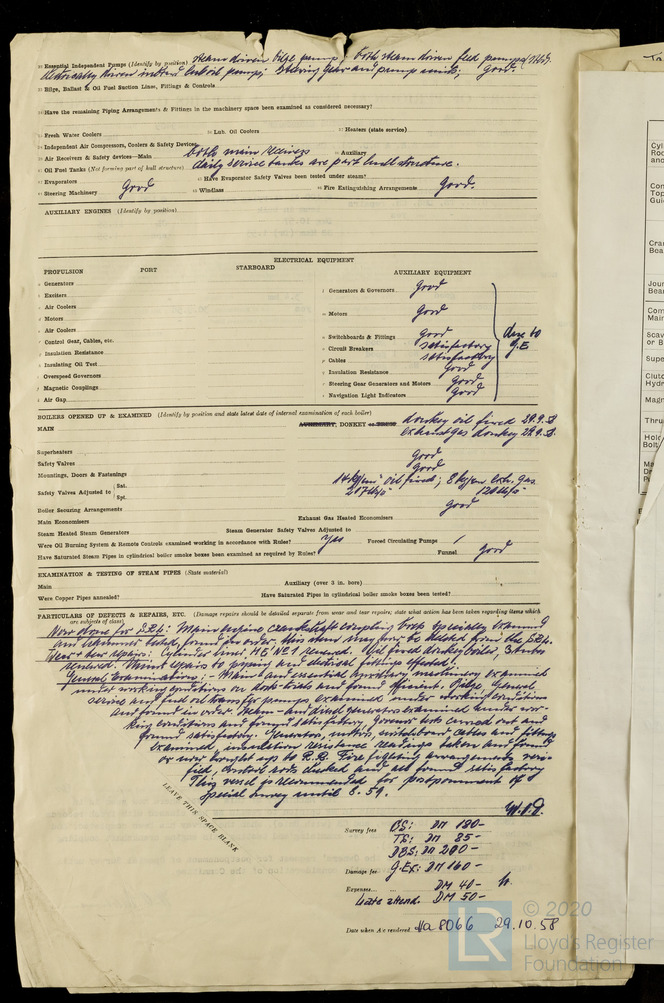 Essential Independent Pumps (Identify by position) steam driven bilge pump; both steam driven feed pumps
electrically driven lub.oil pumps; steering gear and pump units; good.
Bilge, Ballast & Oil Fuel Suction Lines, Fittings & Controls
Have the remaining Piping Arrangements & Fittings in the machinery space been examined as considered necessary?
Fresh Water Coolers Lub. Oil Coolers Heaters (state service)
Independent Air Compressors, Coolers & Safety Devices
Air Receivers & Safety devices—Main both main receivers Auxiliary
Oil Fuel Tanks (Not forming part of hull structure) daily service tanks are part hull structure.
Evaporators Have Evaporator Safety Valves been tested under steam?
Steering Machinery Good Windlass Fire Extinguishing Arrangements Good.
AUXILIARY ENGINES (Identify by position)
ELECTRICAL EQUIPMENT
PROPULSION PORT STARBOARD AUXILIARY EQUIPMENT
Generators
Generators & Governors good
Exciters
Air Coolers
Motors good
Motors
Air Coolers
Switchboards & Fittings good
Control Gear, Cables, etc.
Circuit Breakers satisfactory
due to
G.E.
Insulation Resistance
Cables satisfactory
Insulating Oil Test
Insulation Resistance good
Overspeed Governors
Steering Gear Generators and Motors good
Magnetic Couplings
Navigation Light Indicators good
Air Gap
BOILERS OPENED UP & EXAMINED (Identify by position and state latest date of internal examination of each boiler)
MAIN AUXILIARY, DONKEY donkey oil fired 29.9.58
exhaust gas donkey 29.9.58
Superheaters
Safety Valves Good
Mountings, Doors & Fastenings Good
Safety Valves Adjusted to Sat. 14 kg/cm² oil fired; 8 kg/cm exh. gas
Spt. 120 lbs/□"
Boiler Securing Arrangements good
Main Economisers Exhaust Gas Heated Economisers
Steam Heated Steam Generators Steam Generator Safety Valves Adjusted to
Were Oil Burning System & Remote Controls examined working in accordance with Rules? Yes Forced Circulating Pumps /
Have Saturated Steam Pipes in cylindrical boiler smoke boxes been examined as required by Rules? Funnel good
EXAMINATION & TESTING OF STEAM PIPES (State material)
Main Auxiliary (over 3 in. bore)
Were Copper Pipes annealed? Have Saturated Steam Pipes in cylindrical boiler smoke boxes been tested?
PARTICULARS OF DEFECTS & REPAIRS, ETC. (Damage repairs should be detailed separate from wear and tear repairs; state what action has been taken regarding items which
are subjects of class)
Now done for : Main engine crankshaft specially examined
and hammer tested, found in order.
Wear & tear repairs: Cylinder liner ME No 1 renewed. Oil fired donkey boiler, 3 tubes
renewed. Minor repairs to piping and electrical fittings effected.
General Examination: - Main and essential auxiliary machinery examined
under working conditions on dock trials and found efficient. Bilge, General
service and fuel oil transfer pumps examined under working conditions
and found in order. Steam- and diesel generators examined under wor-
king conditions and found satisfactory. Governor tests carried out and
found satisfactory. Generators, motors, switchboard, cables and fittings
examined, insulation resistance readings taken and found
or now brought up to R.R. Fire fighting arrangements veri-
fied, control rods checked and all found satisfactory
This vessel is recommended for postponement of
Special Survey until 8.59.
LEAVE THIS SPACE BLANK
Survey fees BS: DM 180-
TS: DM 85-
DBS: DM 200-
Damage fee G.Ex: DM 160-
Expenses DM 40-
Late attend. DM 50-
Date when A/c rendered Ha 8066 29.10.58
LR
© 2020
Lloyd's Register
Foundation